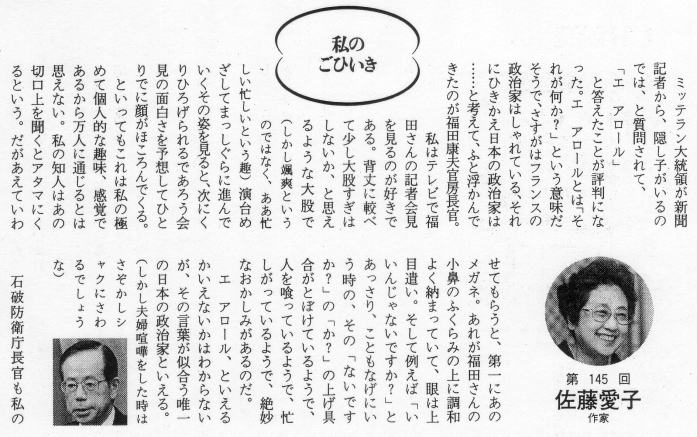 私の
ごひいき
ミッテラン大統領が新聞
記者から、隠し子がいるの
では、と質問されて、
「エ アロール」
と答えたことが評判にな
った。エ アロールとは「そ
れが何か?」という意味だ
そうで、さすがはフランスの
政治家はしゃれている、それ
にひきかえ日本の政治家は
……と考えて、ふと浮かんで
きたのが福田康夫官房長官。
私はテレビで福
田さんの記者会見
を見るのが好きで
ある。背丈に較べ
て少し大股すぎは
しないか、と思え
るような大股で
(しかし颯爽という
のではなく、ああ忙
しい忙しいという趣)演台め
ざしてまっしぐらに進んで
いくその姿を見ると、次にく
りひろげられるであろう会
見の面白さを予想してひと
りでに顔がほころんでくる。
といってもこれは私の極
めて個人的な趣味、感覚で
あるから万人に通じるとは
思えない。私の知人はあの
切口上を聞くとアタマにく
るという。だがあえていわ
せてもらうと、第一にあの
メガネ。あれが福田さんの
小鼻のふくらみの上に調和
よく納まっていて、眼は上
目遣い。そして例えば「い
いんじゃないですか?」と
あっさり、こともなげにい
う時の、その「ないです
か?」の「か?」の上げ具
合がとぼけているようで、
人を喰っているようで、忙
しがっているようで、絶妙
なおかしみがあるのだ。
エ アロール、といえる
かいえないかはわからない
が、その言葉が似合う唯一
の日本の政治家といえる。
(しかし夫婦喧嘩をした時は
さぞかしシ
ャクにさわ
るでしょう
な)
石破防衛庁長官も私の
第145回
佐藤愛子
作家